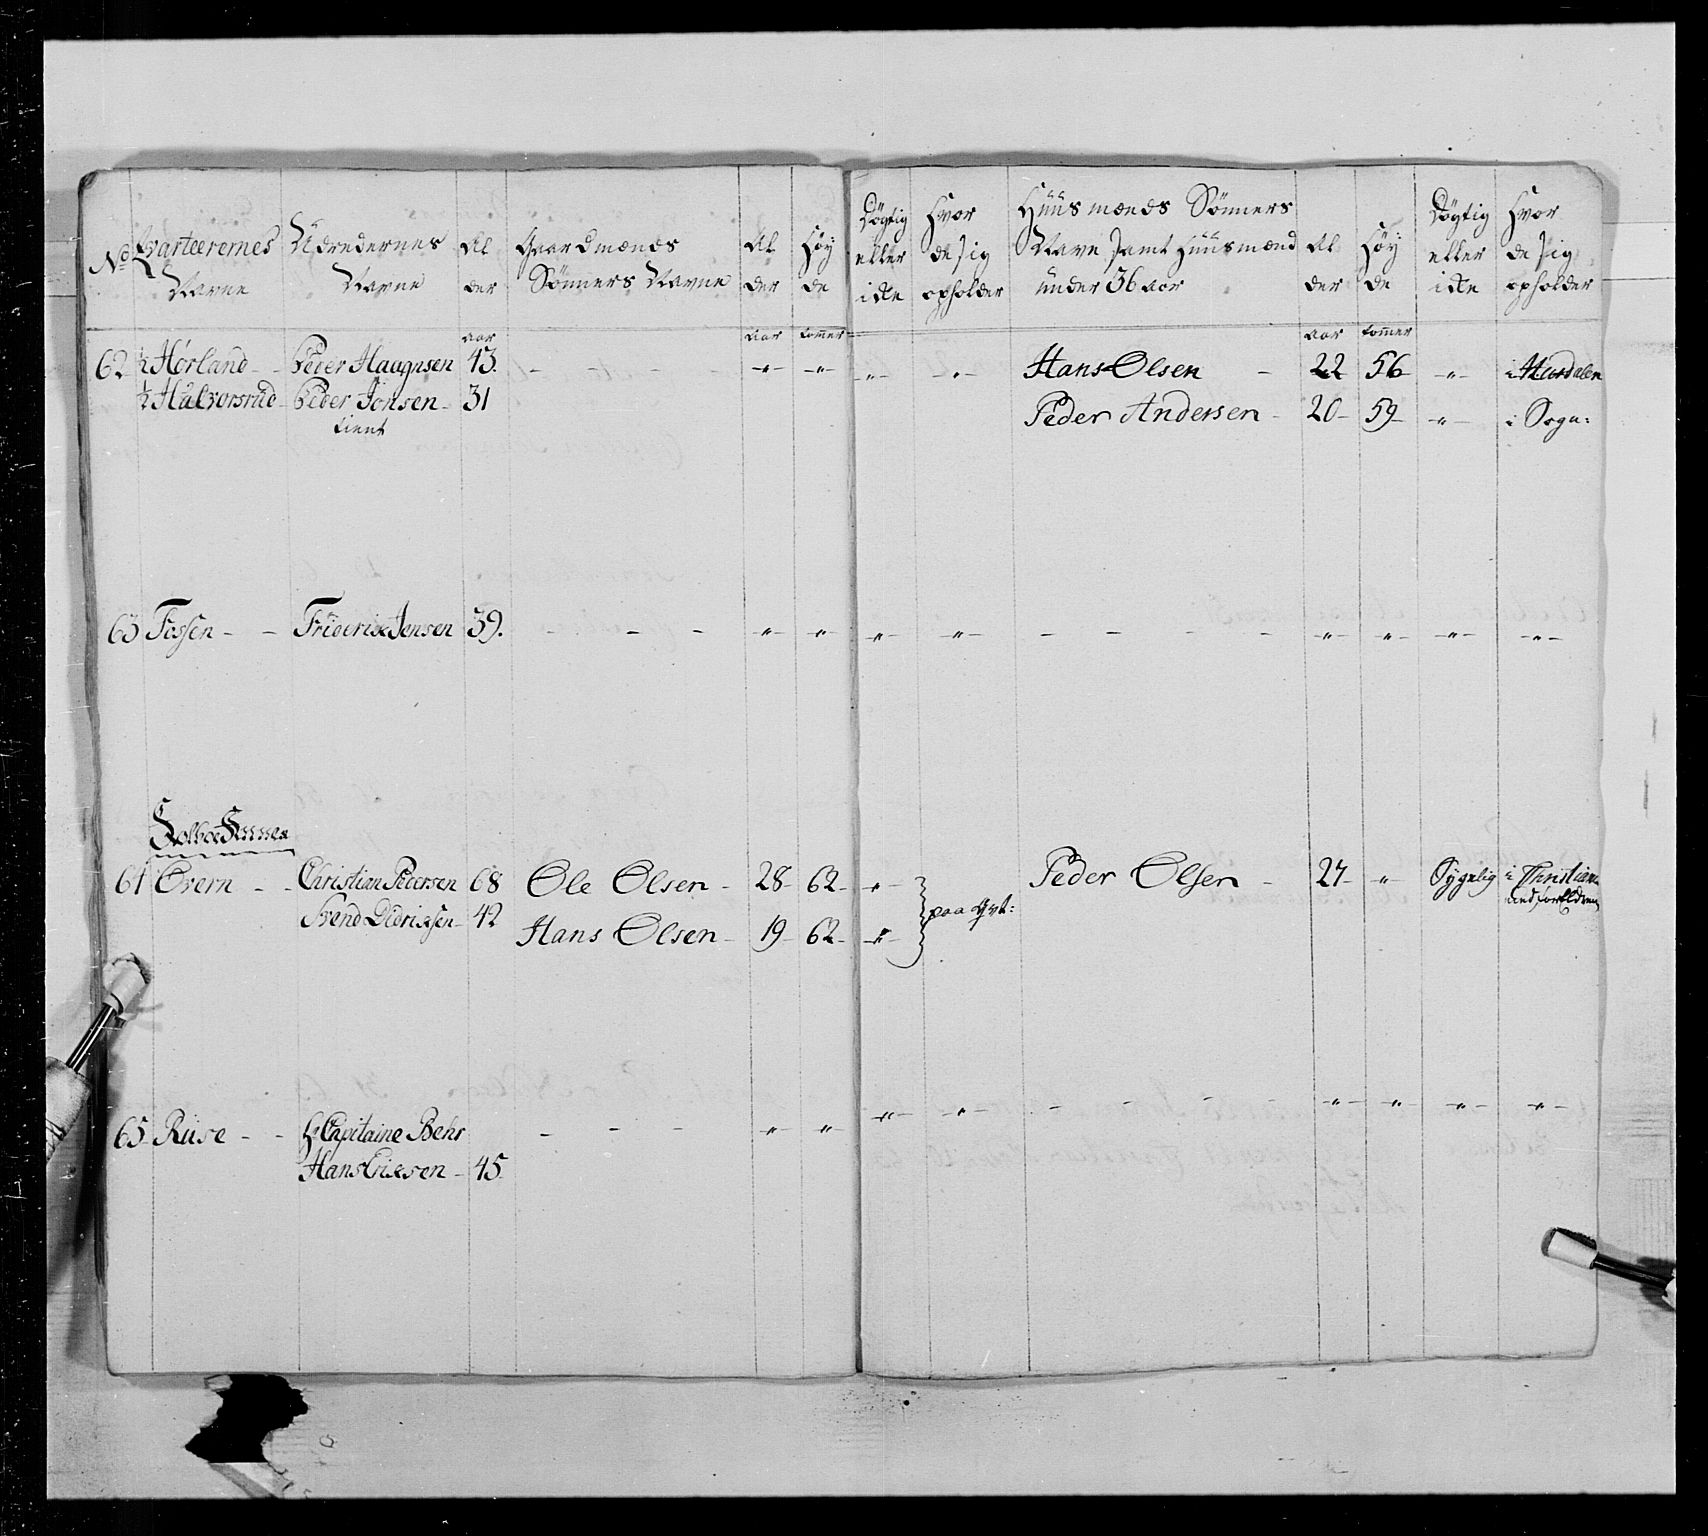 No Qvarteerernes Navne | Udredernes Navne | Al der | Gaardmænds Sønners Navne | Al der | Høy de | Døgtig eller icke | Hvor de sig opholder | Huusmænds Sønners Navne samt Huusmænd under 36 aar | Al der | Høy de | Døgtig eller icke | Hvor de sig opholder
aar | aar | tommer | aar | tommer
62 ½ Hørland - - Peder Haagnsen 43. - - - - -"- -"- -"- -"- Hans Olsen - 22 56 -"- i Hurdalen
½ Halvorsrud - Peder Jonsen - 31 Peder Andersen - 20 - 59 - -"- i Sogn:
tient
63 Fossen - - Friderix Jensen 39. - - - -"- -"- -"- -"- - - - - -"- -"- -"- -"-
64 Overn - - Christian Pedersen 68 Ole Olsen - 28 - 62 - -"- paa Qvt: Peder Olsen - 27 - " Sygelig i Christian
Svend Didrixsen - 42 Hans Olsen - 19 - 62 - -"-
65 Ruse - - Hr Capitaine Behr - - - -"- -"- -"- -"- - - - - -"- -"- -"- -"-
Hans Erixsen - 45